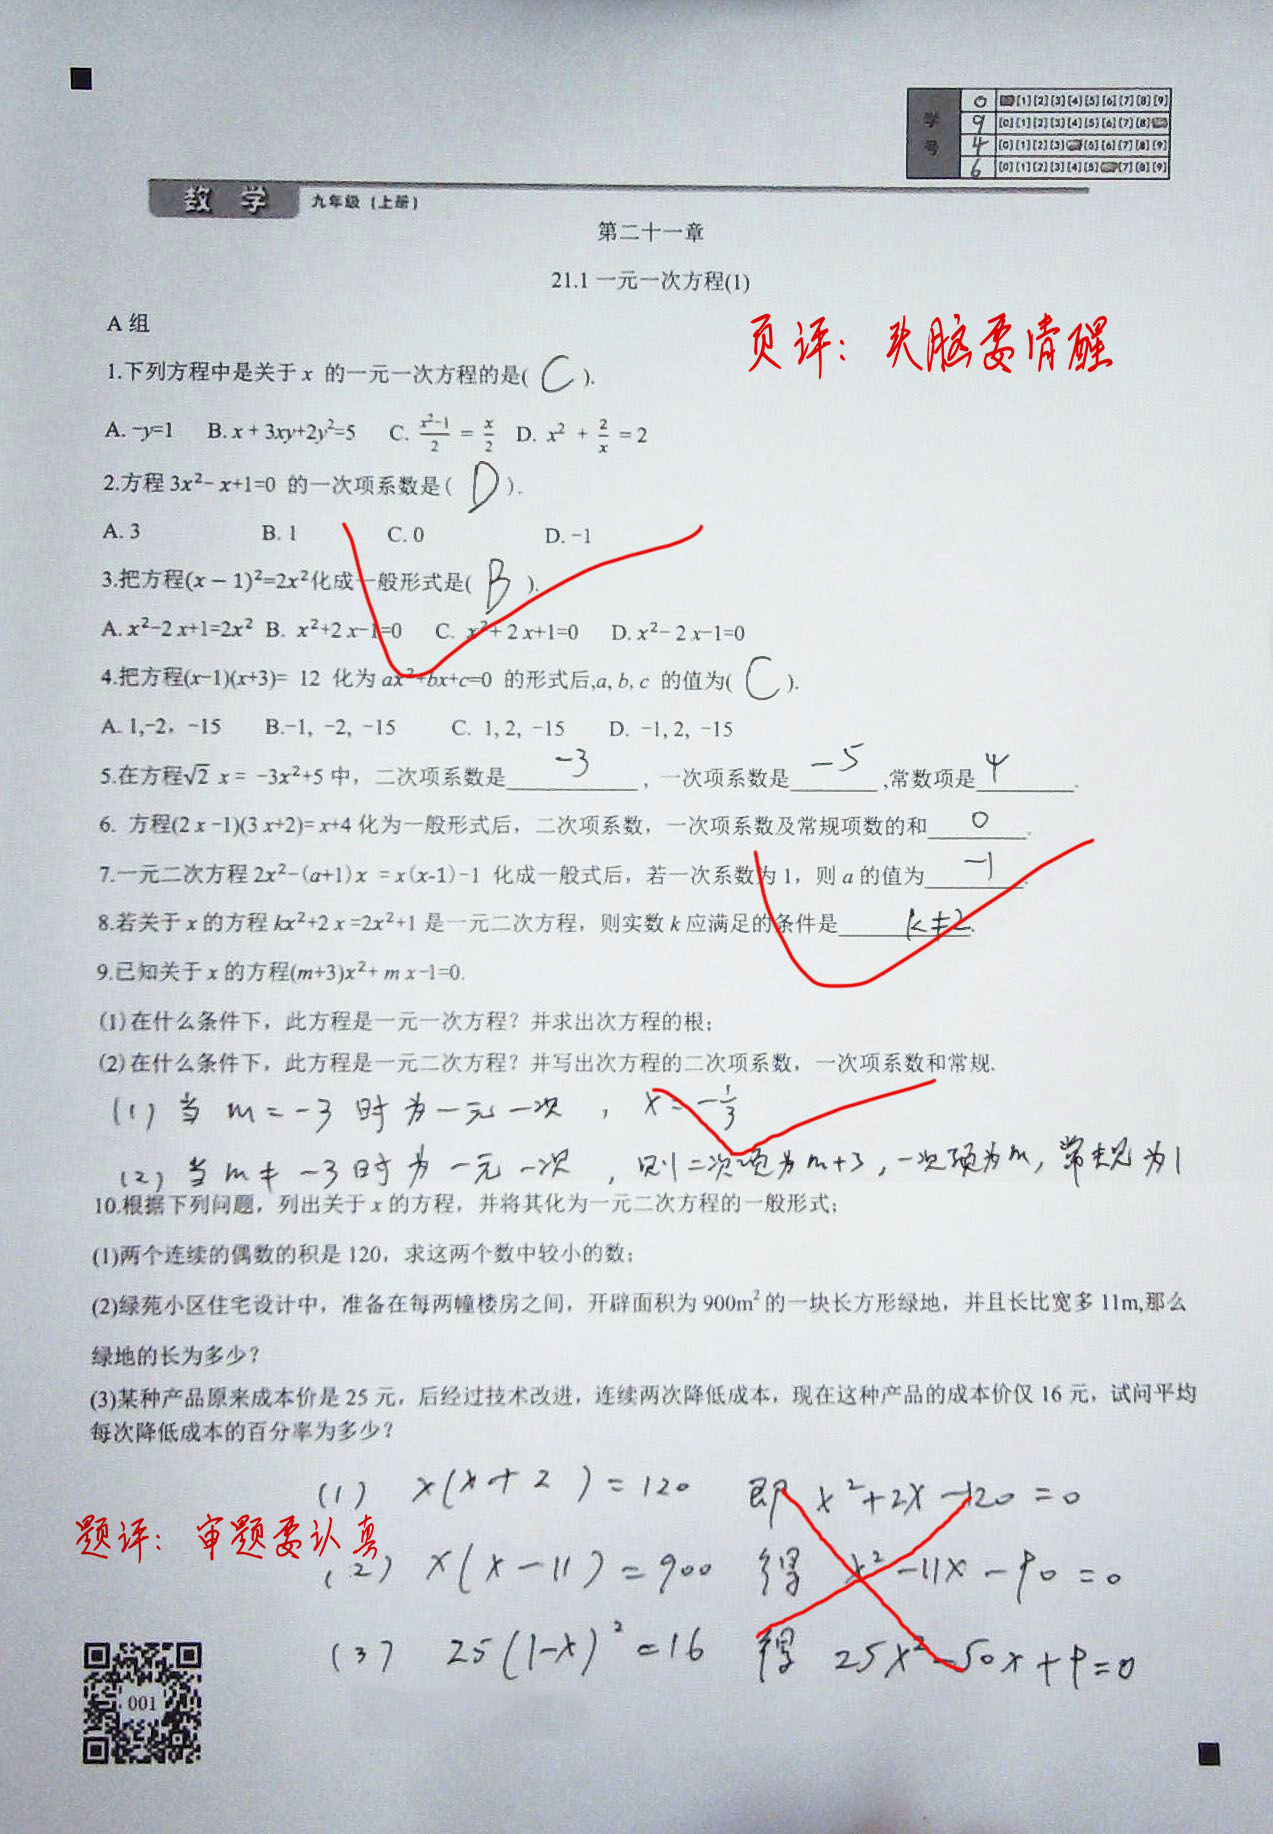 学号
0 [1] [2] [3] [4] [5] [6] [7] [8] [9]
9 [0] [1] [2] [3] [4] [5] [6] [7] [8]
4 [0] [1] [2] [3] [5] [6] [7] [8] [9]
6 [0] [1] [2] [3] [4] [5] [7] [8] [9]
数学 九年级（上册）
第二十一章
21.1 一元一次方程(1)
A 组
页评：头脑要清醒
1.下列方程中是关于 x 的一元一次方程的是( C ).
A. -y=1 B. x + 3xy+2y²=5 C. (x²-1)/2 = x/2 D. x² + 2/x = 2
2.方程 3x²- x+1=0 的一次项系数是( D ).
A. 3 B. 1 C. 0 D. -1
3.把方程(x - 1)²=2x²化成一般形式是( B ).
A. x²-2 x+1=2x² B. x²+2 x-1=0 C. x²+ 2 x+1=0 D. x²- 2 x-1=0
4.把方程(x-1)(x+3)= 12 化为 ax²+bx+c=0 的形式后,a, b, c 的值为( C ).
A. 1,-2，-15 B.-1, -2, -15 C. 1, 2, -15 D. -1, 2, -15
5.在方程√2 x = -3x²+5 中，二次项系数是 -3 ，一次项系数是 -5 ,常数项是 4 .
6. 方程(2 x -1)(3 x+2)= x+4 化为一般形式后，二次项系数，一次项系数及常规项数的和 0 .
7.一元二次方程 2x²-(a+1) x = x(x-1)-1 化成一般式后，若一次系数为 1，则 a 的值为 -1 .
8.若关于 x 的方程 kx²+2 x =2x²+1 是一元二次方程，则实数 k 应满足的条件是 k≠2 .
9.已知关于 x 的方程(m+3)x²+ m x-1=0.
(1)在什么条件下，此方程是一元一次方程？并求出次方程的根；
(2)在什么条件下，此方程是一元二次方程？并写出次方程的二次项系数，一次项系数和常规.
(1) 当 m = -3 时为一元一次，x = -1/3
(2) 当 m ≠ -3 时为一元一次，则二次项为 m+3，一次项为 m，常规为 1
10.根据下列问题，列出关于 x 的方程，并将其化为一元二次方程的一般形式；
(1)两个连续的偶数的积是 120，求这两个数中较小的数；
(2)绿苑小区住宅设计中，准备在每两幢楼房之间，开辟面积为 900m² 的一块长方形绿地，并且长比宽多 11m,那么
绿地的长为多少？
(3)某种产品原来成本价是 25 元，后经过技术改进，连续两次降低成本，现在这种产品的成本价仅 16 元，试问平均
每次降低成本的百分率为多少？
(1) x(x+2) = 120 即 x²+2x-120=0
题评：审题要认真
(2) x(x-11) = 900 得 x²-11x-90=0
(3) 25(1-x)²=16 得 25x²-50x+9=0
001